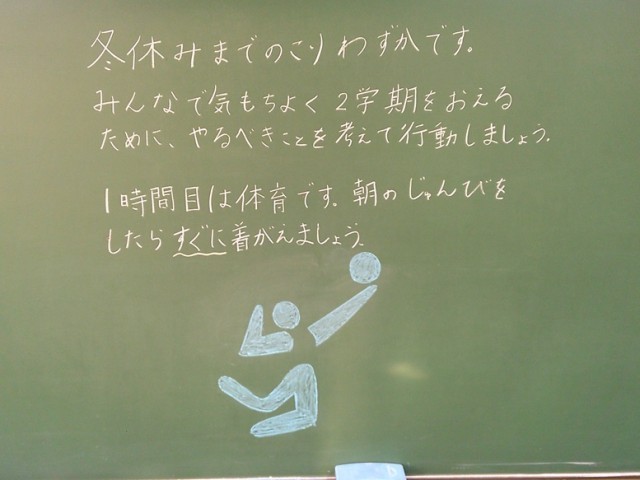 冬休みまでのこりわずかです。
みんなで気もちよく2学期をおえる
ために、やるべきことを考えて行動しましょう。
1時間目は体育です。朝のじゅんびを
したらすぐに着がえましょう。